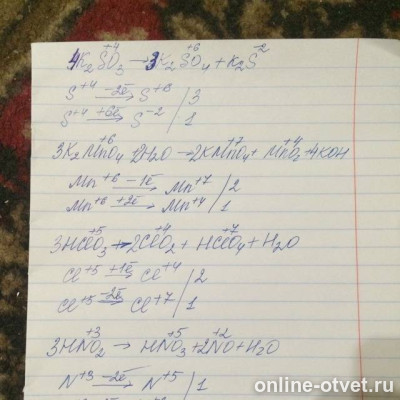 4K₂S⁺⁴O₃ → 3K₂S⁺⁶O₄ + K₂S⁻²
S⁺⁴ –2ē→ S⁺⁶ / 3
S⁺⁴ +6ē→ S⁻² / 1
3K₂Mn⁺⁶O₄ + 2H₂O → 2KMn⁺⁷O₄ + Mn⁺⁴O₂ + 4KOH
Mn⁺⁶ –1ē→ Mn⁺⁷ / 2
Mn⁺⁶ +2ē→ Mn⁺⁴ / 1
3HCl⁺⁵O₃ → 2Cl⁺⁴O₂ + HCl⁺⁷O₄ + H₂O
Cl⁺⁵ +1ē→ Cl⁺⁴ / 2
Cl⁺⁵ –2ē→ Cl⁺⁷ / 1
3HN⁺³O₂ → HN⁺⁵O₃ + 2N⁺²O + H₂O
N⁺³ –2ē→ N⁺⁵ / 1
online-otvet.ru